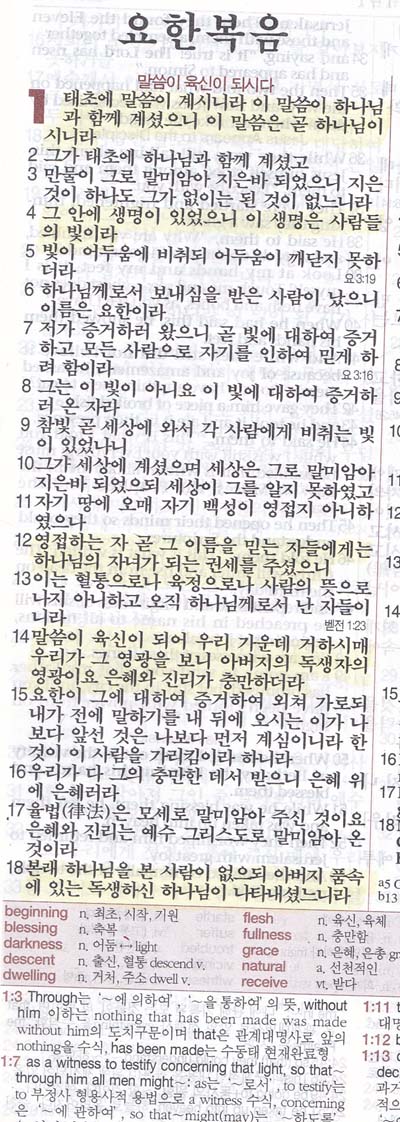 요한복음
말씀이 육신이 되시다
1 태초에 말씀이 계시니라 이 말씀이 하나님
과 함께 계셨으니 이 말씀은 곧 하나님이
시니라
2 그가 태초에 하나님과 함께 계셨고
3 만물이 그로 말미암아 지은바 되었으니 지은
것이 하나도 그가 없이는 된 것이 없느니라
4 그 안에 생명이 있었으니 이 생명은 사람들
의 빛이라
5 빛이 어두움에 비취되 어두움이 깨닫지 못하
더라 요3:19
6 하나님께로서 보내심을 받은 사람이 났으니
이름은 요한이라
7 저가 증거하러 왔으니 곧 빛에 대하여 증거
하고 모든 사람으로 자기를 인하여 믿게 하
려 함이라 요3:16
8 그는 이 빛이 아니요 이 빛에 대하여 증거하
러 온 자라
9 참빛 곧 세상에 와서 각 사람에게 비취는 빛
이 있었나니
10 그가 세상에 계셨으며 세상은 그로 말미암아
지은바 되었으되 세상이 그를 알지 못하였고
11 자기 땅에 오매 자기 백성이 영접지 아니하
였으나
12 영접하는 자 곧 그 이름을 믿는 자들에게는
하나님의 자녀가 되는 권세를 주셨으니
13 이는 혈통으로나 육정으로나 사람의 뜻으로
나지 아니하고 오직 하나님께로서 난 자들이
니라 벧전1:23
14 말씀이 육신이 되어 우리 가운데 거하시매
우리가 그 영광을 보니 아버지의 독생자의
영광이요 은혜와 진리가 충만하더라
15 요한이 그에 대하여 증거하여 외쳐 가로되
내가 전에 말하기를 내 뒤에 오시는 이가 나
보다 앞선 것은 나보다 먼저 계심이니라 한
것이 이 사람을 가리킴이라 하니라
16 우리가 다 그의 충만한 데서 받으니 은혜 위
에 은혜러라
17 율법(律法)은 모세로 말미암아 주신 것이요
은혜와 진리는 예수 그리스도로 말미암아 온
것이라
18 본래 하나님을 본 사람이 없으되 아버지 품속
에 있는 독생하신 하나님이 나타내셨느니라
beginning n. 최초, 시작, 기원
blessing n. 축복
darkness n. 어둠 ↔ light
descent n. 출신, 혈통 descend v.
dwelling n. 거처, 주소 dwell v.
flesh n. 육신, 육체
fullness n. 충만함
grace n. 은혜, 은총
natural a. 선천적인
receive vt. 받다
1:3 Through는 '~에 의하여', '~을 통하여'의 뜻, without
him 이하는 nothing that has been made was made
without him의 도치구문이며 that은 관계대명사로 앞의
nothing을 수식, has been made는 수동태 현재완료형
1:7 as a witness to testify concerning that light, so that~
through him all men might~ : as는 '~로서', to testify는
to 부정사 형용사적 용법으로 a witness 수식, concerning
은 '~에 관하여', so that~might(may)는 '~하도록'